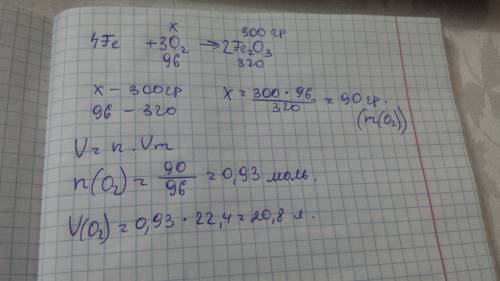 x 300 гр
4Fe + 3O₂ → 2Fe₂O₃
96 320
x – 300гр x = 300 · 96 / 320 = 90 гр.
96 – 320 (m(O₂))
V = n · Vm
n(O₂) = 90 / 96 = 0,93 моль.
V(O₂) = 0,93 · 22,4 = 20,8 л.